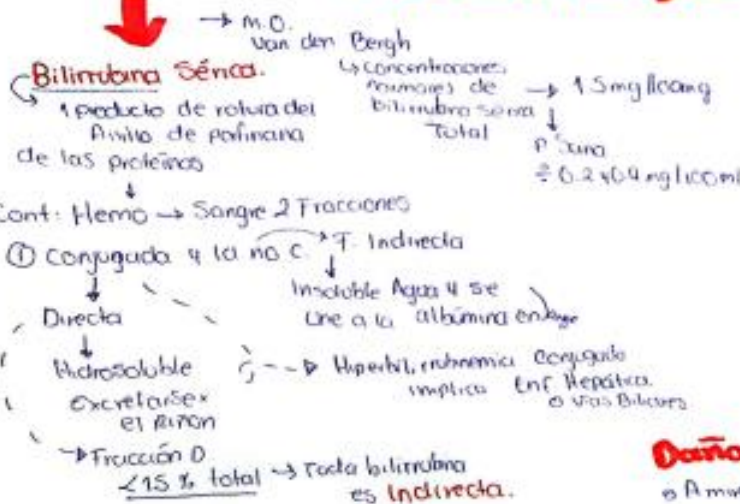 → M.O.
Van den Bergh
Bilirrubina Sérica.
↳ Concentraciones
normales de → 1.5mg/100mg
bilirrubina serica
Total
P. Sana
÷ 0.2 y 0.9 mg/100ml
1 producto de rotura del
Anillo de porfirina
de las proteínas
Cont: Hemo → Sangre 2 Fracciones
① Conjugada y la no C. → F. Indirecta
Insoluble Agua y se
une a la albúmina en
Directa
Hidrosoluble
excretarse x
el Riñon
Hiperbilirrubinemia conjugada
implica Enf Hepática
o vías Biliares
→ Fracción D
<15 % total → Toda bilirrubina
es Indirecta.
Daño